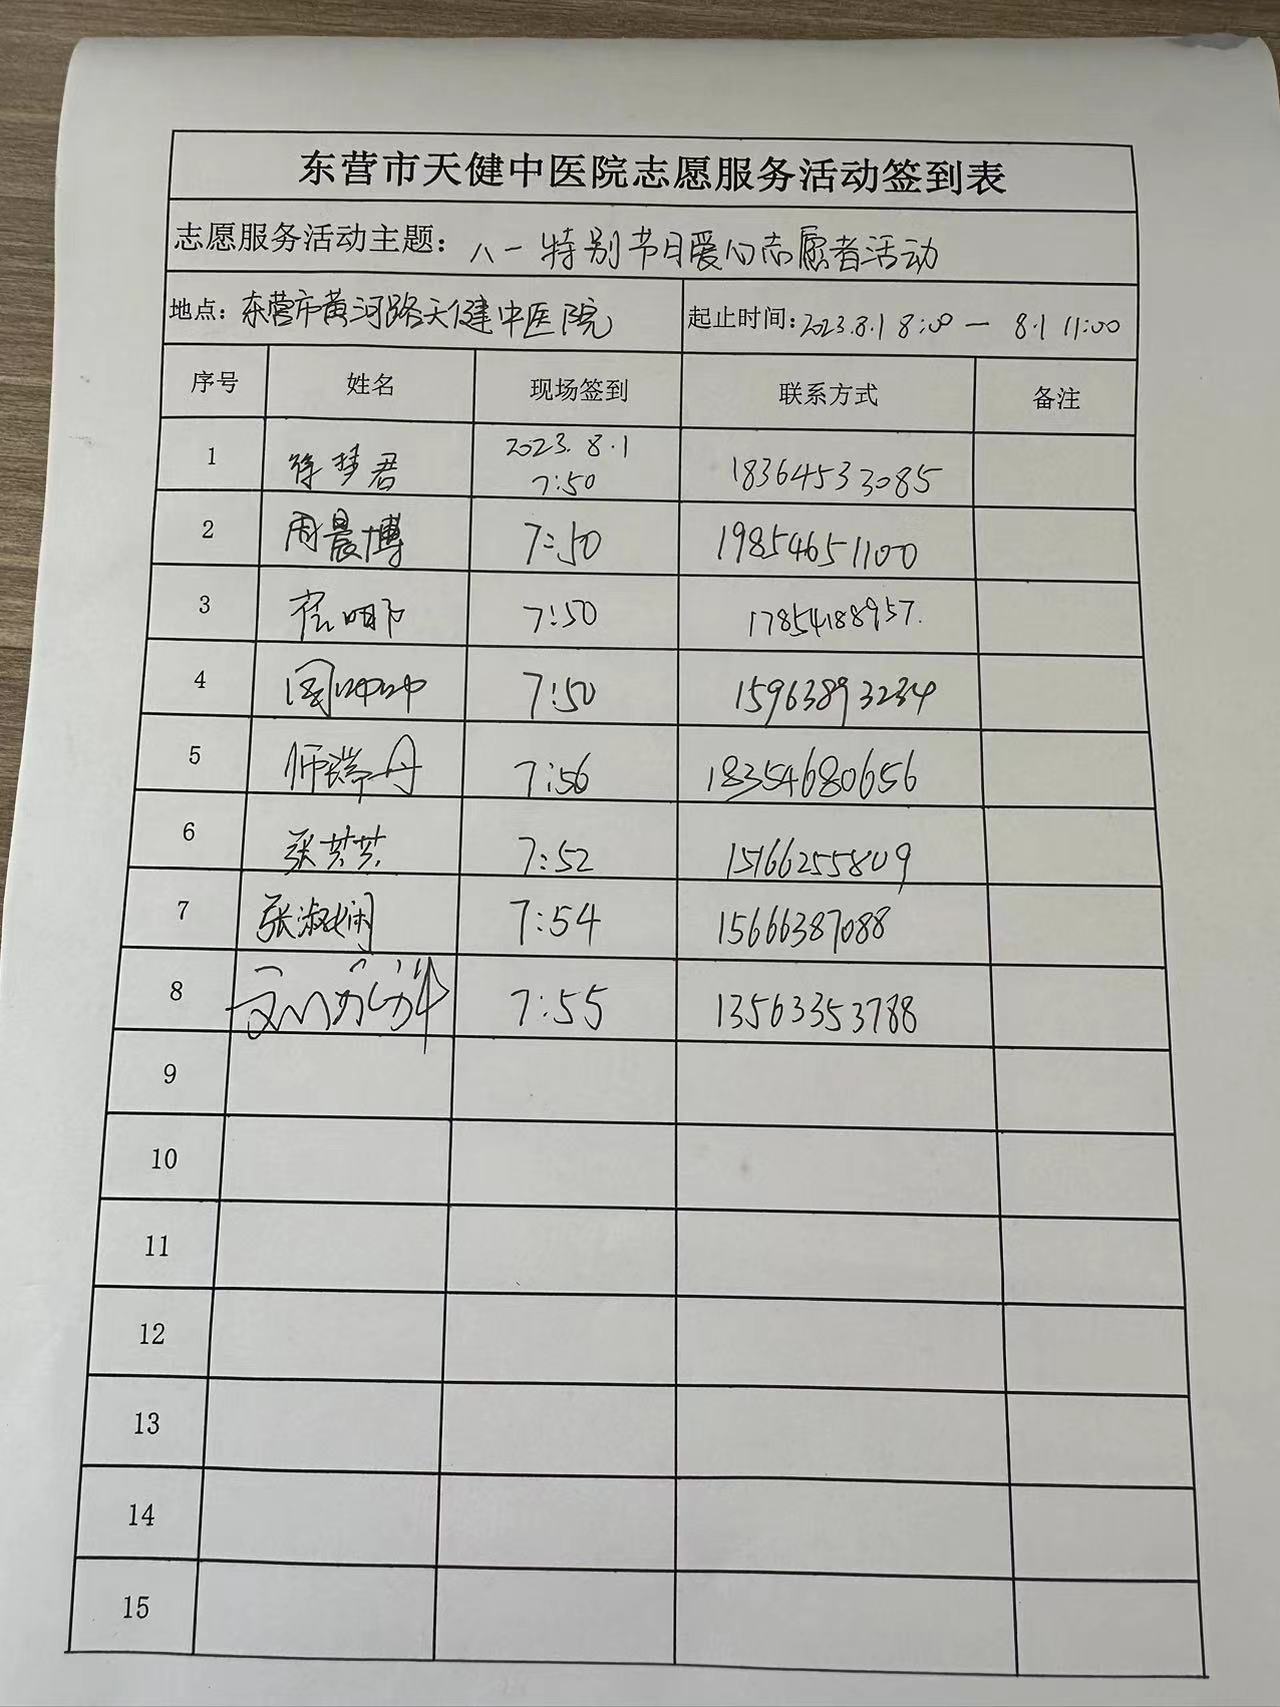 东营市天健中医院志愿服务活动签到表
志愿服务活动主题：八一特别节日爱心志愿者活动
地点：东营市黄河路天健中医院 起止时间：2023.8.1 8:00 — 8.1 11:00
序号 姓名 现场签到 联系方式 备注
1 徐梦君 2023.8.1 7:50 18364533085
2 周晨博 7:50 19854651100
3 7:50 17854188957.
4 周冲冲 7:50 15963893234
5 师瑞丹 7:56 18354680656
6 张芸芸 7:52 15166255809
7 张淑娴 7:54 15666387088
8 7:55 13563353788
9
10
11
12
13
14
15